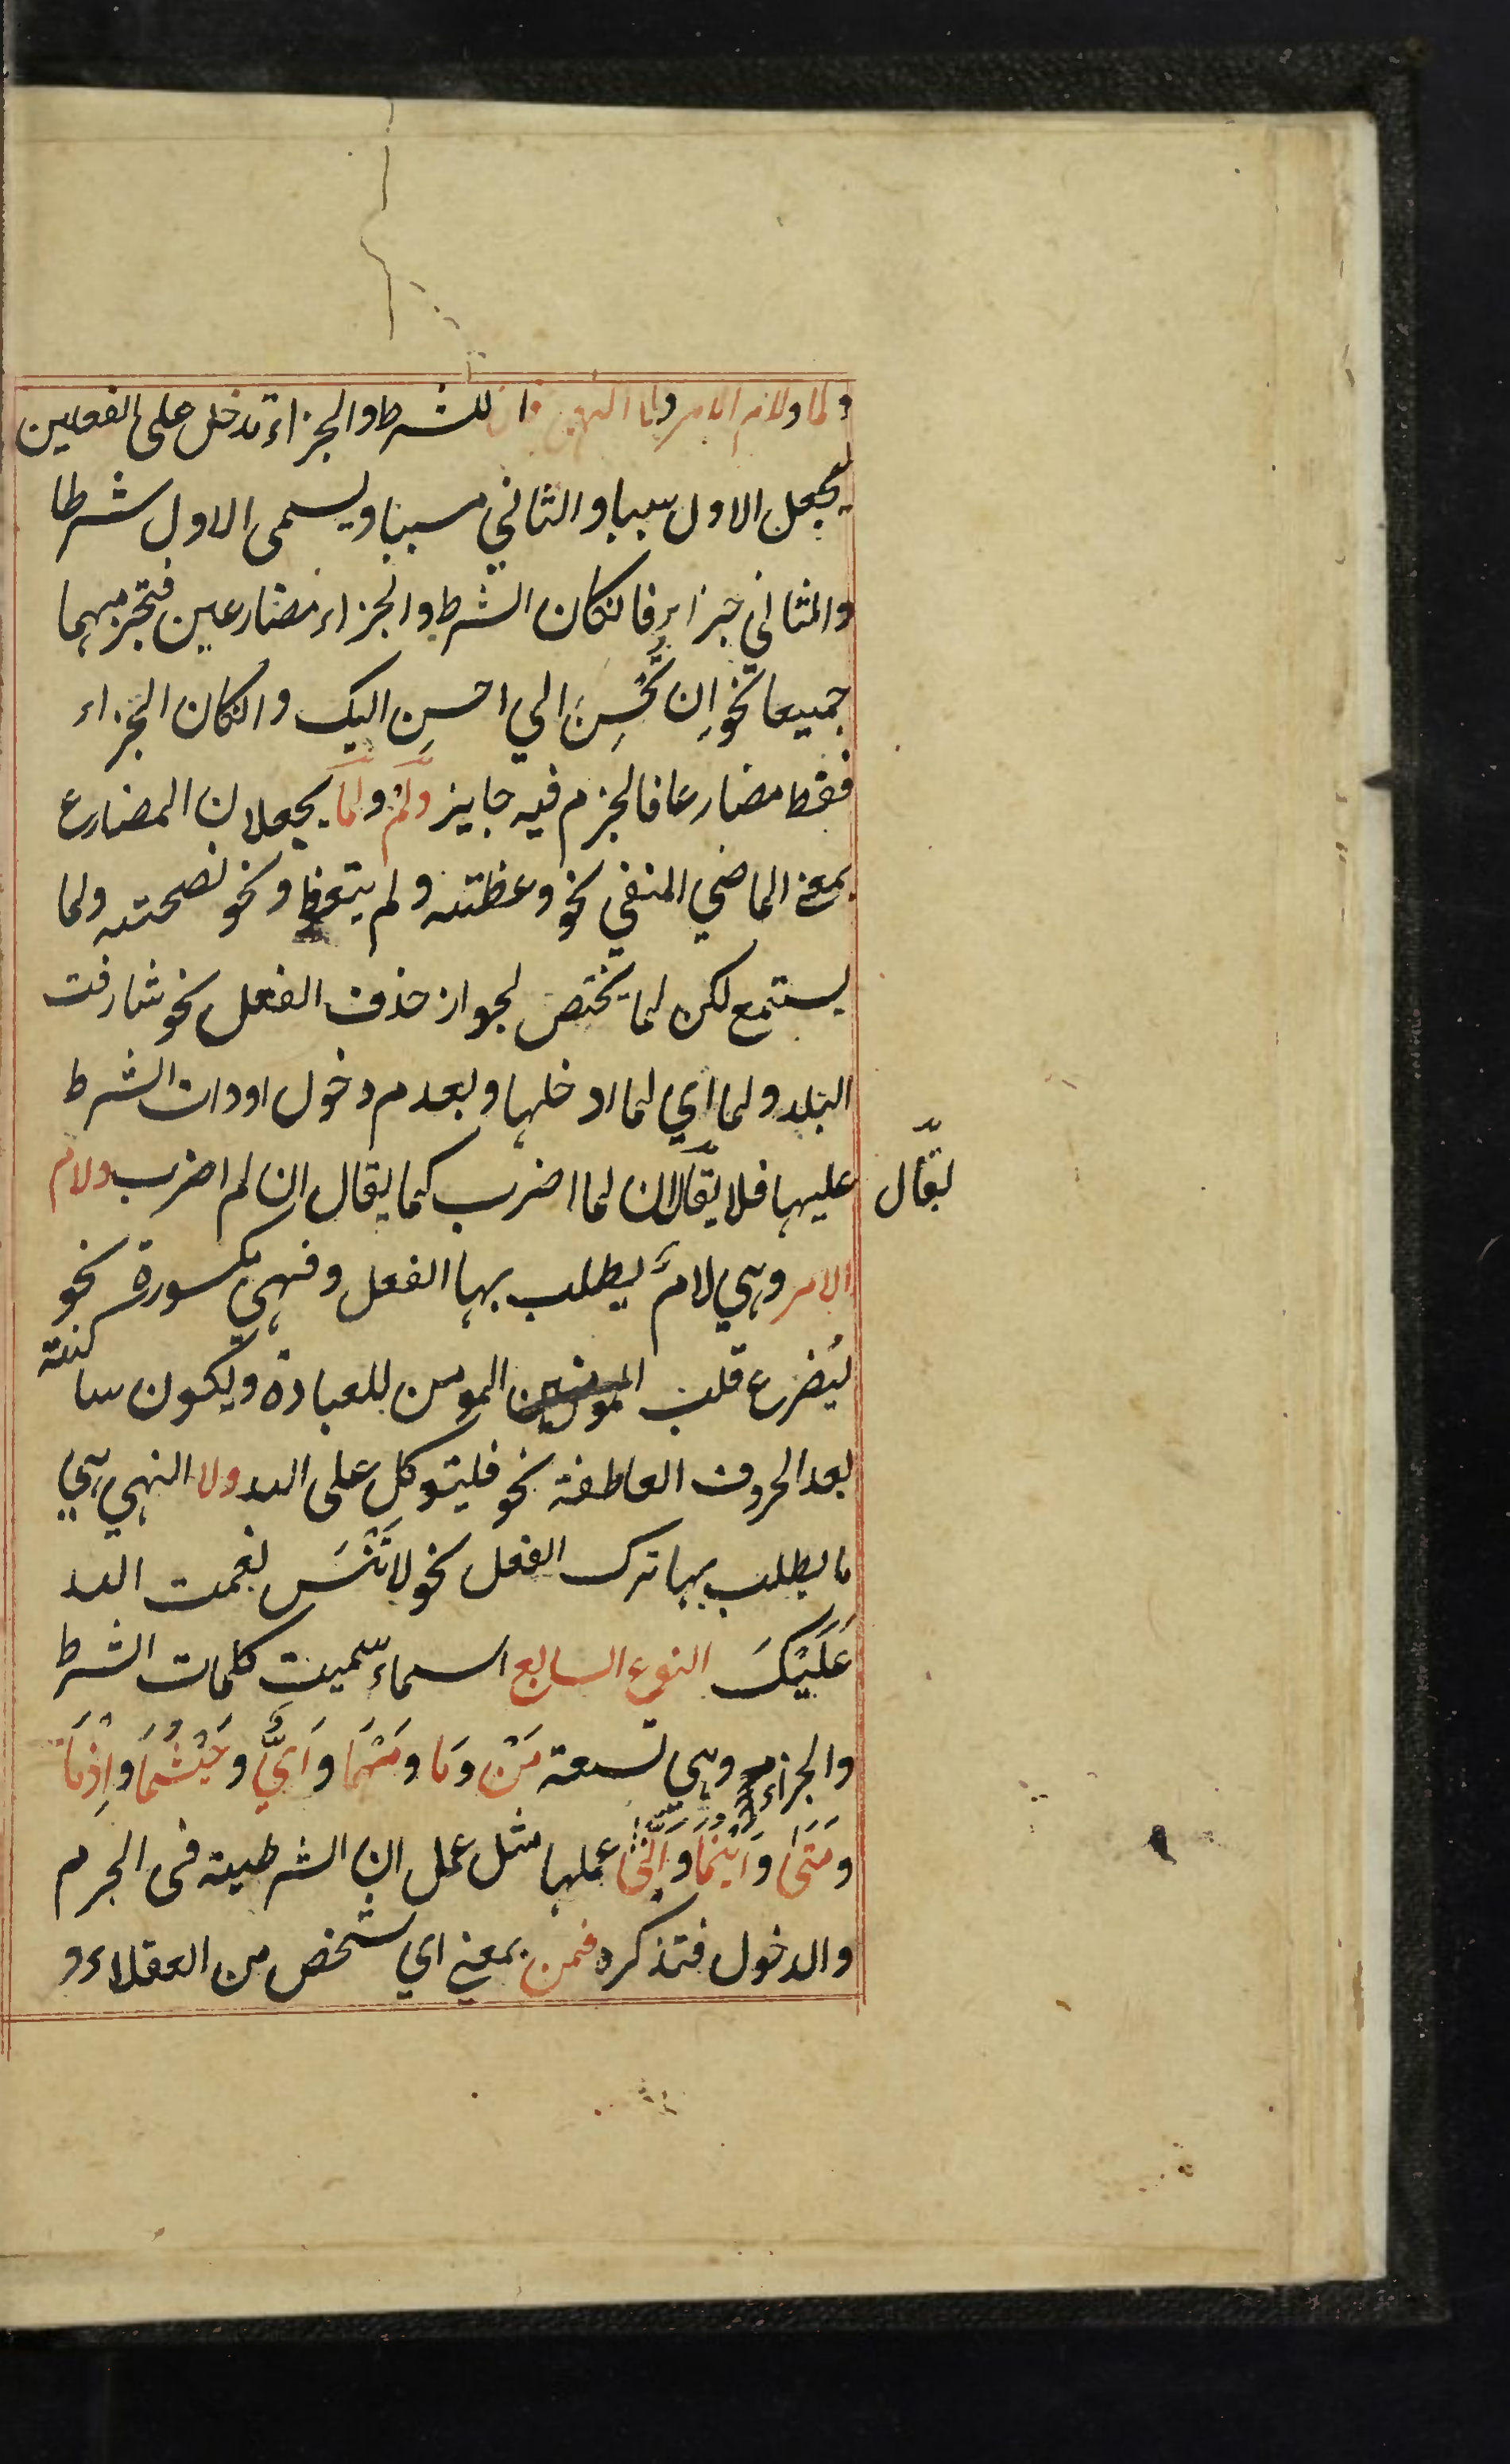 ولما ولام الامر ولا النهي فان للشرط والجزاء تدخل على الفعلين
يجعل الاول سببا والثاني مسببا ويسمى الاول شرطا
والثاني جزاء فانكان الشرط والجزاء مضارعين فتجزمهما
جميعا نحو اِن تُحْسِنْ الي احسِن اليك وانكان الجزاء
فقط مضارعا فالجزم فيه جايز ولَمْ ولَمّا يجعلان المضارع
بمعنى الماضي المنفي نحو وعظته ولم يتعظ ونحو نصحته ولما
يستمع لكن لما يختص لجواز حذف الفعل نحو شارفت
البلد ولما اي لما ادخلها وبعدم دخول اودات الشرط
عليها فلا يقال ان لما اضرب كما يقال ان لم اضرب ولام
يقال
الامر وهي لامٌ يطلب بها الفعل وفهي مكسورة نحو
ليضرع قلب المؤمن للعبادة ويكون ساكنة
بعد الحروف العاطفة نحو فليتوكل على الله ولا النهي هي
ما يطلب بها ترك الفعل نحو لا تَنْسَ نعمت الله
عَلَيْكَ النوع السابع اسماء سميت كلمات الشرط
والجزاء وهي تسعة مَنْ وَمَا ومَهْمَا وَاَيٌّ وحَيْثُمَا واِذْمَا
ومَتٰى واَيْنَمَا واَنّٰى عملها مثل عمل ان الشرطية فى الجزم
والدخول فتذكره فمن بمعنى اي شخص من العقلاء و